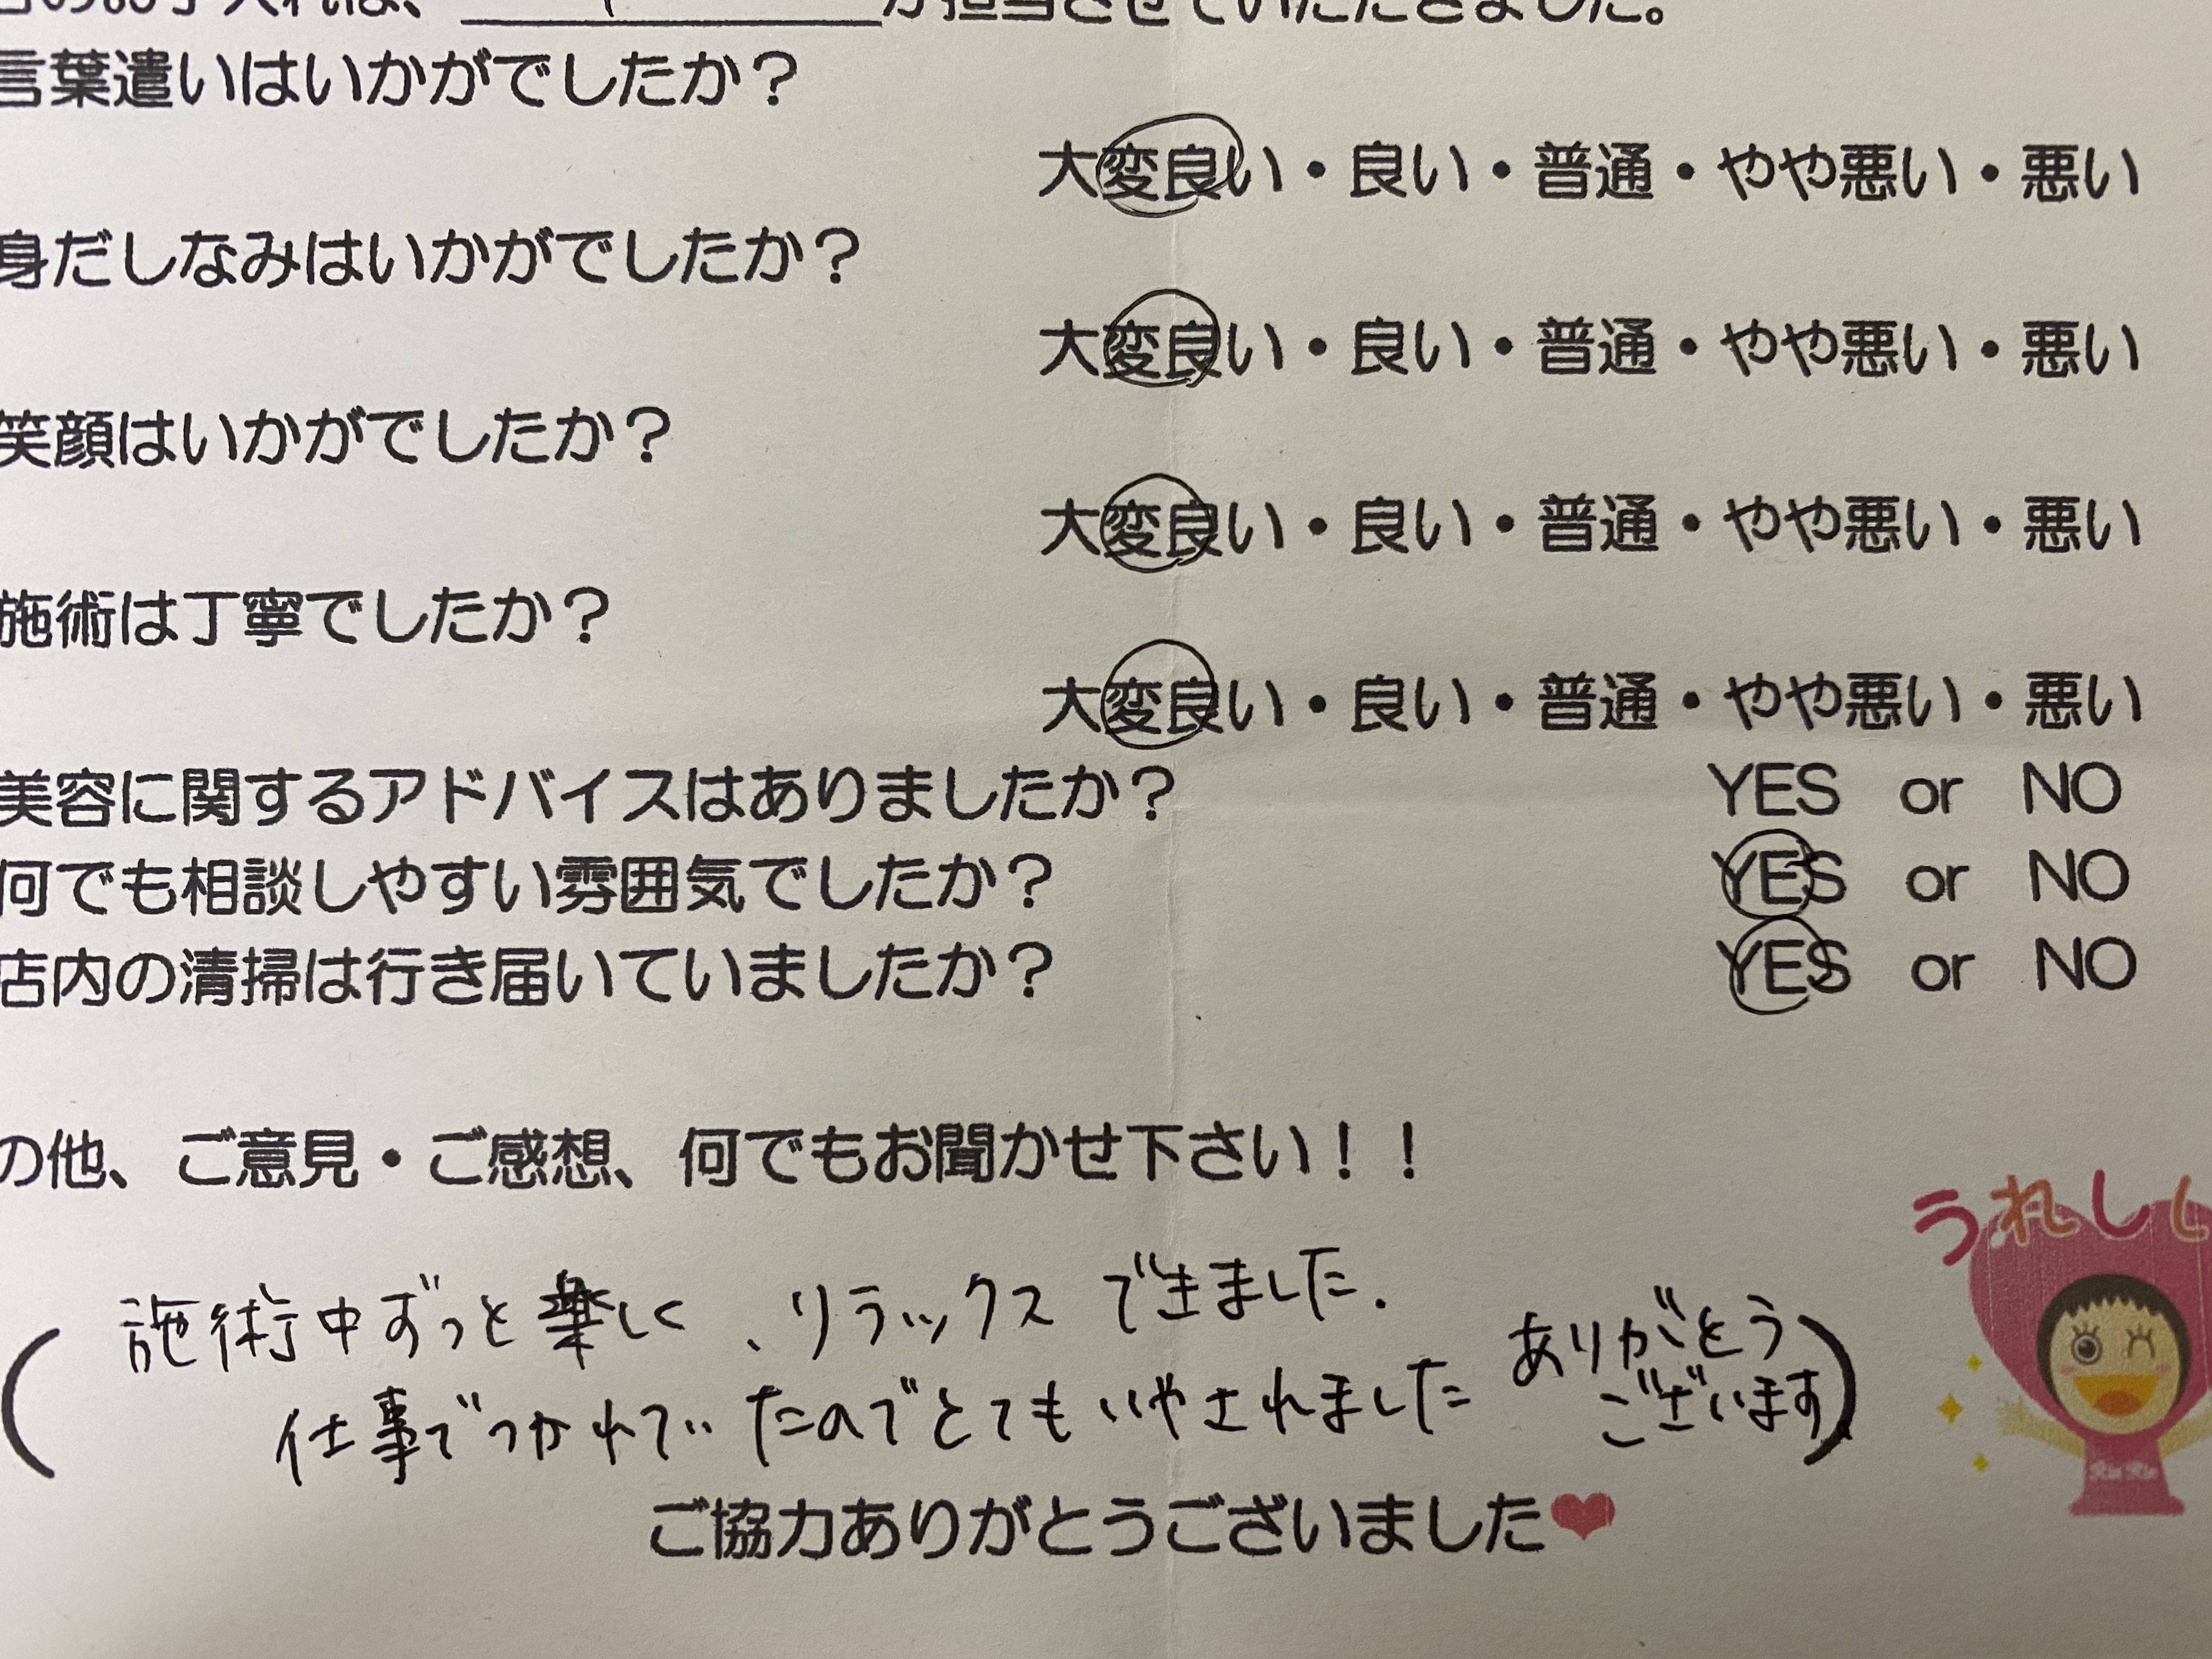 が担当させていただきました。
言葉遣いはいかがでしたか？
大変良い・良い・普通・やや悪い・悪い
身だしなみはいかがでしたか？
大変良い・良い・普通・やや悪い・悪い
笑顔はいかがでしたか？
大変良い・良い・普通・やや悪い・悪い
施術は丁寧でしたか？
大変良い・良い・普通・やや悪い・悪い
美容に関するアドバイスはありましたか？ YES or NO
何でも相談しやすい雰囲気でしたか？ YES or NO
店内の清掃は行き届いていましたか？ YES or NO
の他、ご意見・ご感想、何でもお聞かせ下さい！！
うれしい
(施術中ずっと楽しく、リラックスできました.
仕事でつかれていたのでとてもいやされました ありがとう
ございます)
RinRin
ご協力ありがとうございました❤